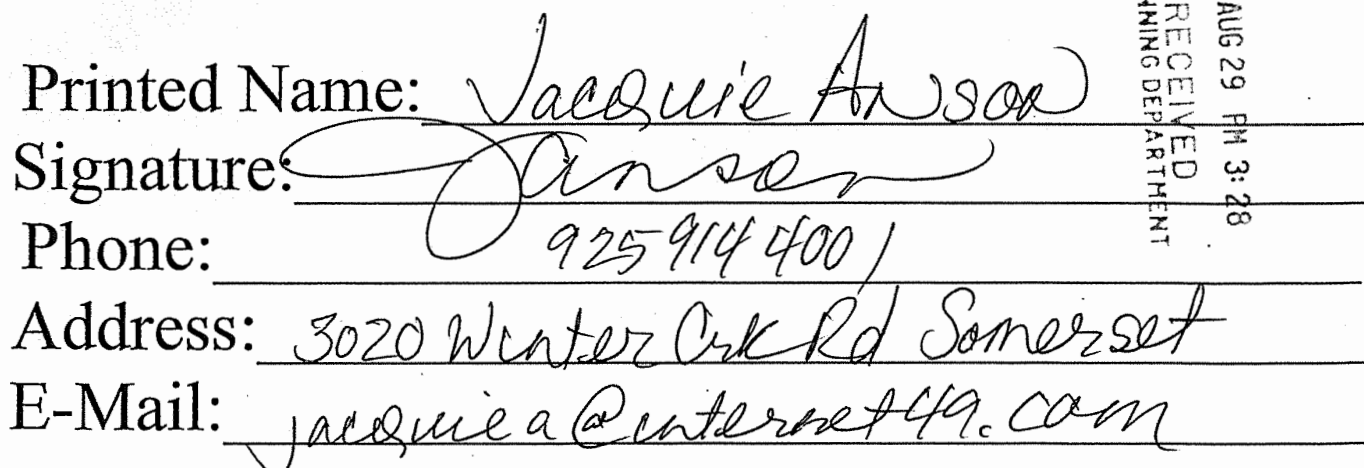 Printed Name: Jacquie Anson
Signature: Janson
Phone: 925 914 4001
Address: 3020 Winter Crk Rd Somerset
E-Mail: jacquiea@internet49.com
AUG 29 PM 3:28
RECEIVED
NNING DEPARTMENT